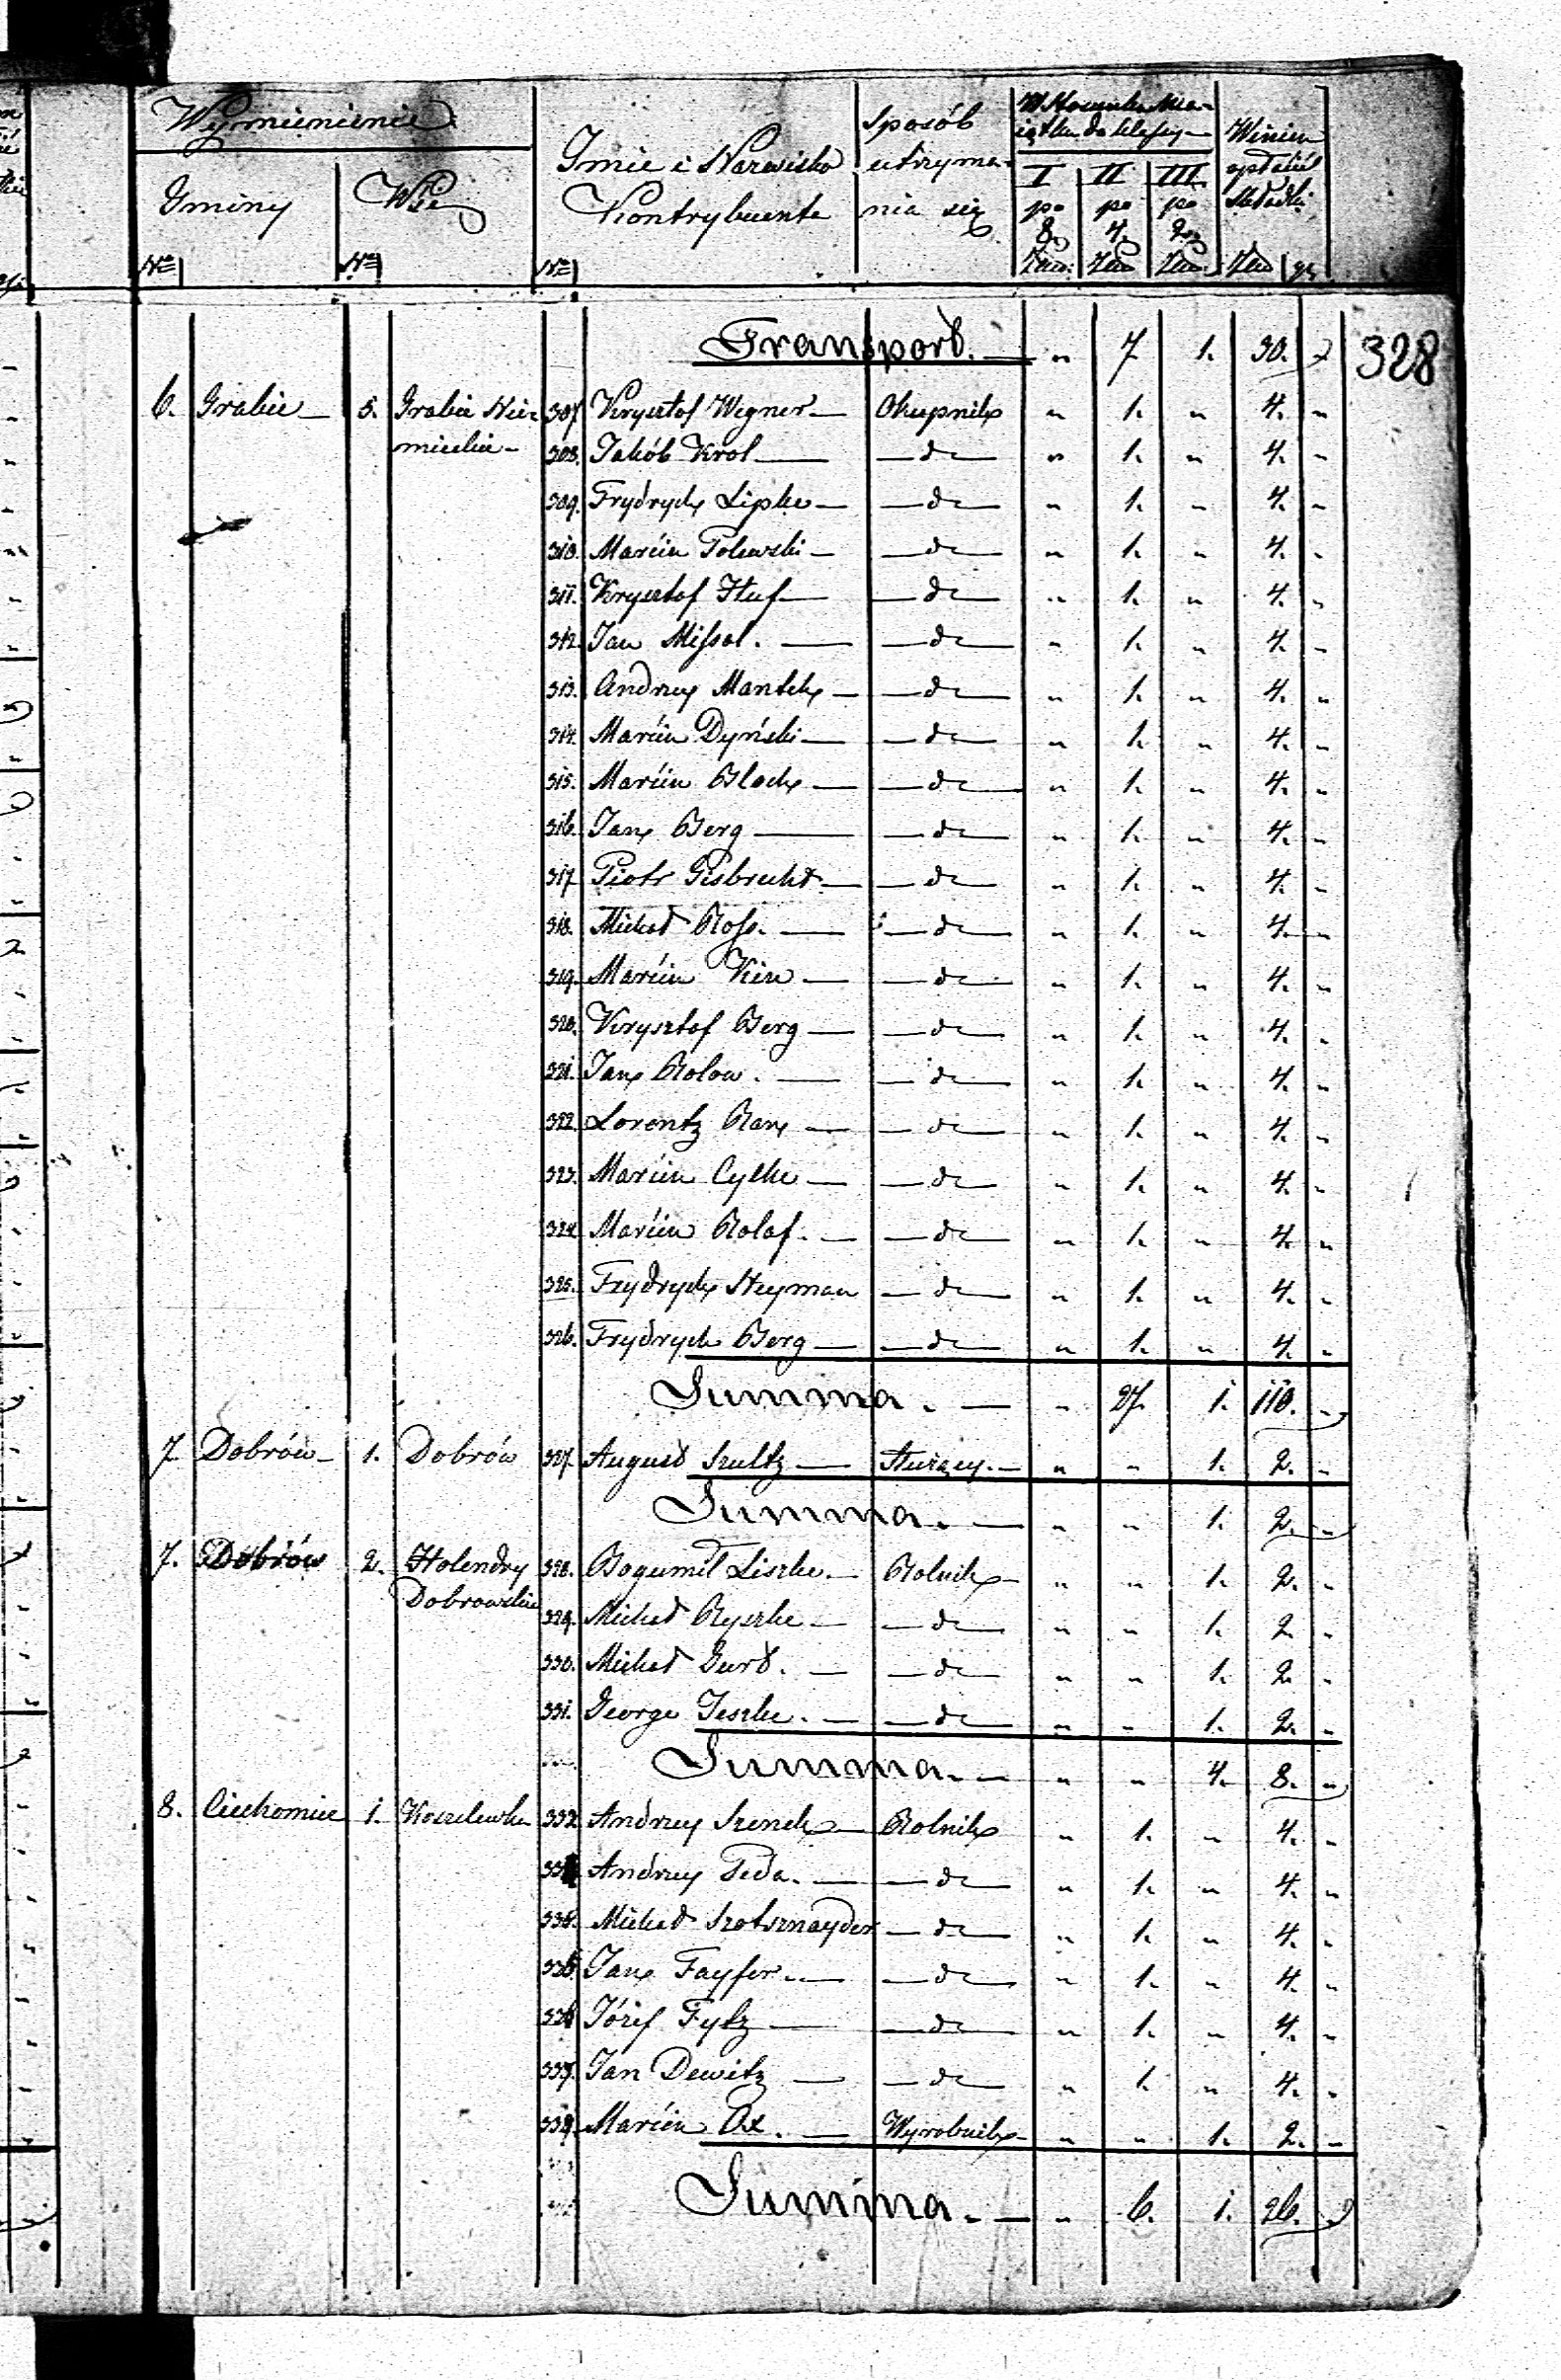 Wymienienie
Gminy
Wsi
Imie i Nazwisko
Kontrybuenta
Sposób
utrzyma-
nia się
W Stosunku Ma-
iątku do klassy
I II III
po po po
8. 4. 2.
Winien
opłacić
Składki
№ № №
Transport. — " 7 1. 30. "
328
6. Grabie — 5. Grabie Nie- 307. Krysztof Wegner — Okupnik " 1. " 4. "
mieckie - 308. Jakób Krol — do " 1. " 4. "
309. Frydrych Lipke — do " 1. " 4. "
310. Marcin Polewski — do " 1. " 4. "
311. Krysztof Huf — do " 1. " 4. "
312. Jan Missal. — do " 1. " 4. "
313. Andrzey Mantek — do " 1. " 4. "
314. Marcin Dyński — do " 1. " 4. "
315. Marcin Bloch — do " 1. " 4. "
316. Jan Berg — do " 1. " 4. "
317. Piotr Gisbrecht — do " 1. " 4. "
318. Michał Ross. — do " 1. " 4. "
319. Marcin Kin — do " 1. " 4. "
320. Krysztof Berg — do " 1. " 4. "
321. Jan Rolow. — do " 1. " 4. "
322. Lorentz Ran — do " 1. " 4. "
323. Marcin Cylke — do " 1. " 4. "
324. Marcin Rolof. — do " 1. " 4. "
325. Frydrych Steyman — do " 1. " 4. "
326. Frydrych Berg — do " 1. " 4. "
Summa. — " 27. 1. 110. "
7. Dobrów — 1. Dobrów 327. August Szultz — Służący. — " " 1. 2. "
Summa. — " " 1. 2. "
7. Dobrów 2. Holendry 328. Bogumił Liszke. — Rolnik — " " 1. 2. "
Dobrowskie 329. Michał Ryszke — do " " 1. 2. "
330. Michał Gurt. — do " " 1. 2. "
331. George Jeszke. — do " " 1. 2. "
Summa. — " " 4. 8. "
8. Ciechomice 1. Koszelewka 332. Andrzey Szenck — Rolnik " 1. " 4. "
Andrzey Peda. — do " 1. " 4. "
Michał Szotsznayder — do " 1. " 4. "
Jan Fayfer. — do " 1. " 4. "
Józef Fyltz — do " 1. " 4. "
Jan Dewitz — do " 1. " 4. "
Marcin Ox. — Wyrobnik — " " 1. 2. "
Summa. — " 6. 1. 26. "